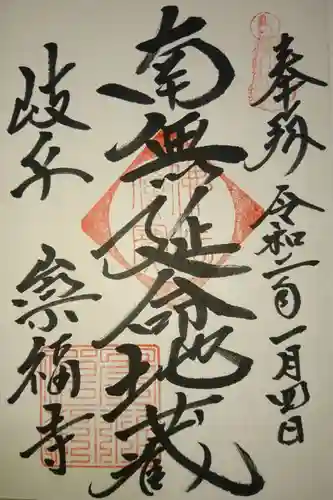 奉拝 令和二年一月四日
南無延命地蔵
崇福寺